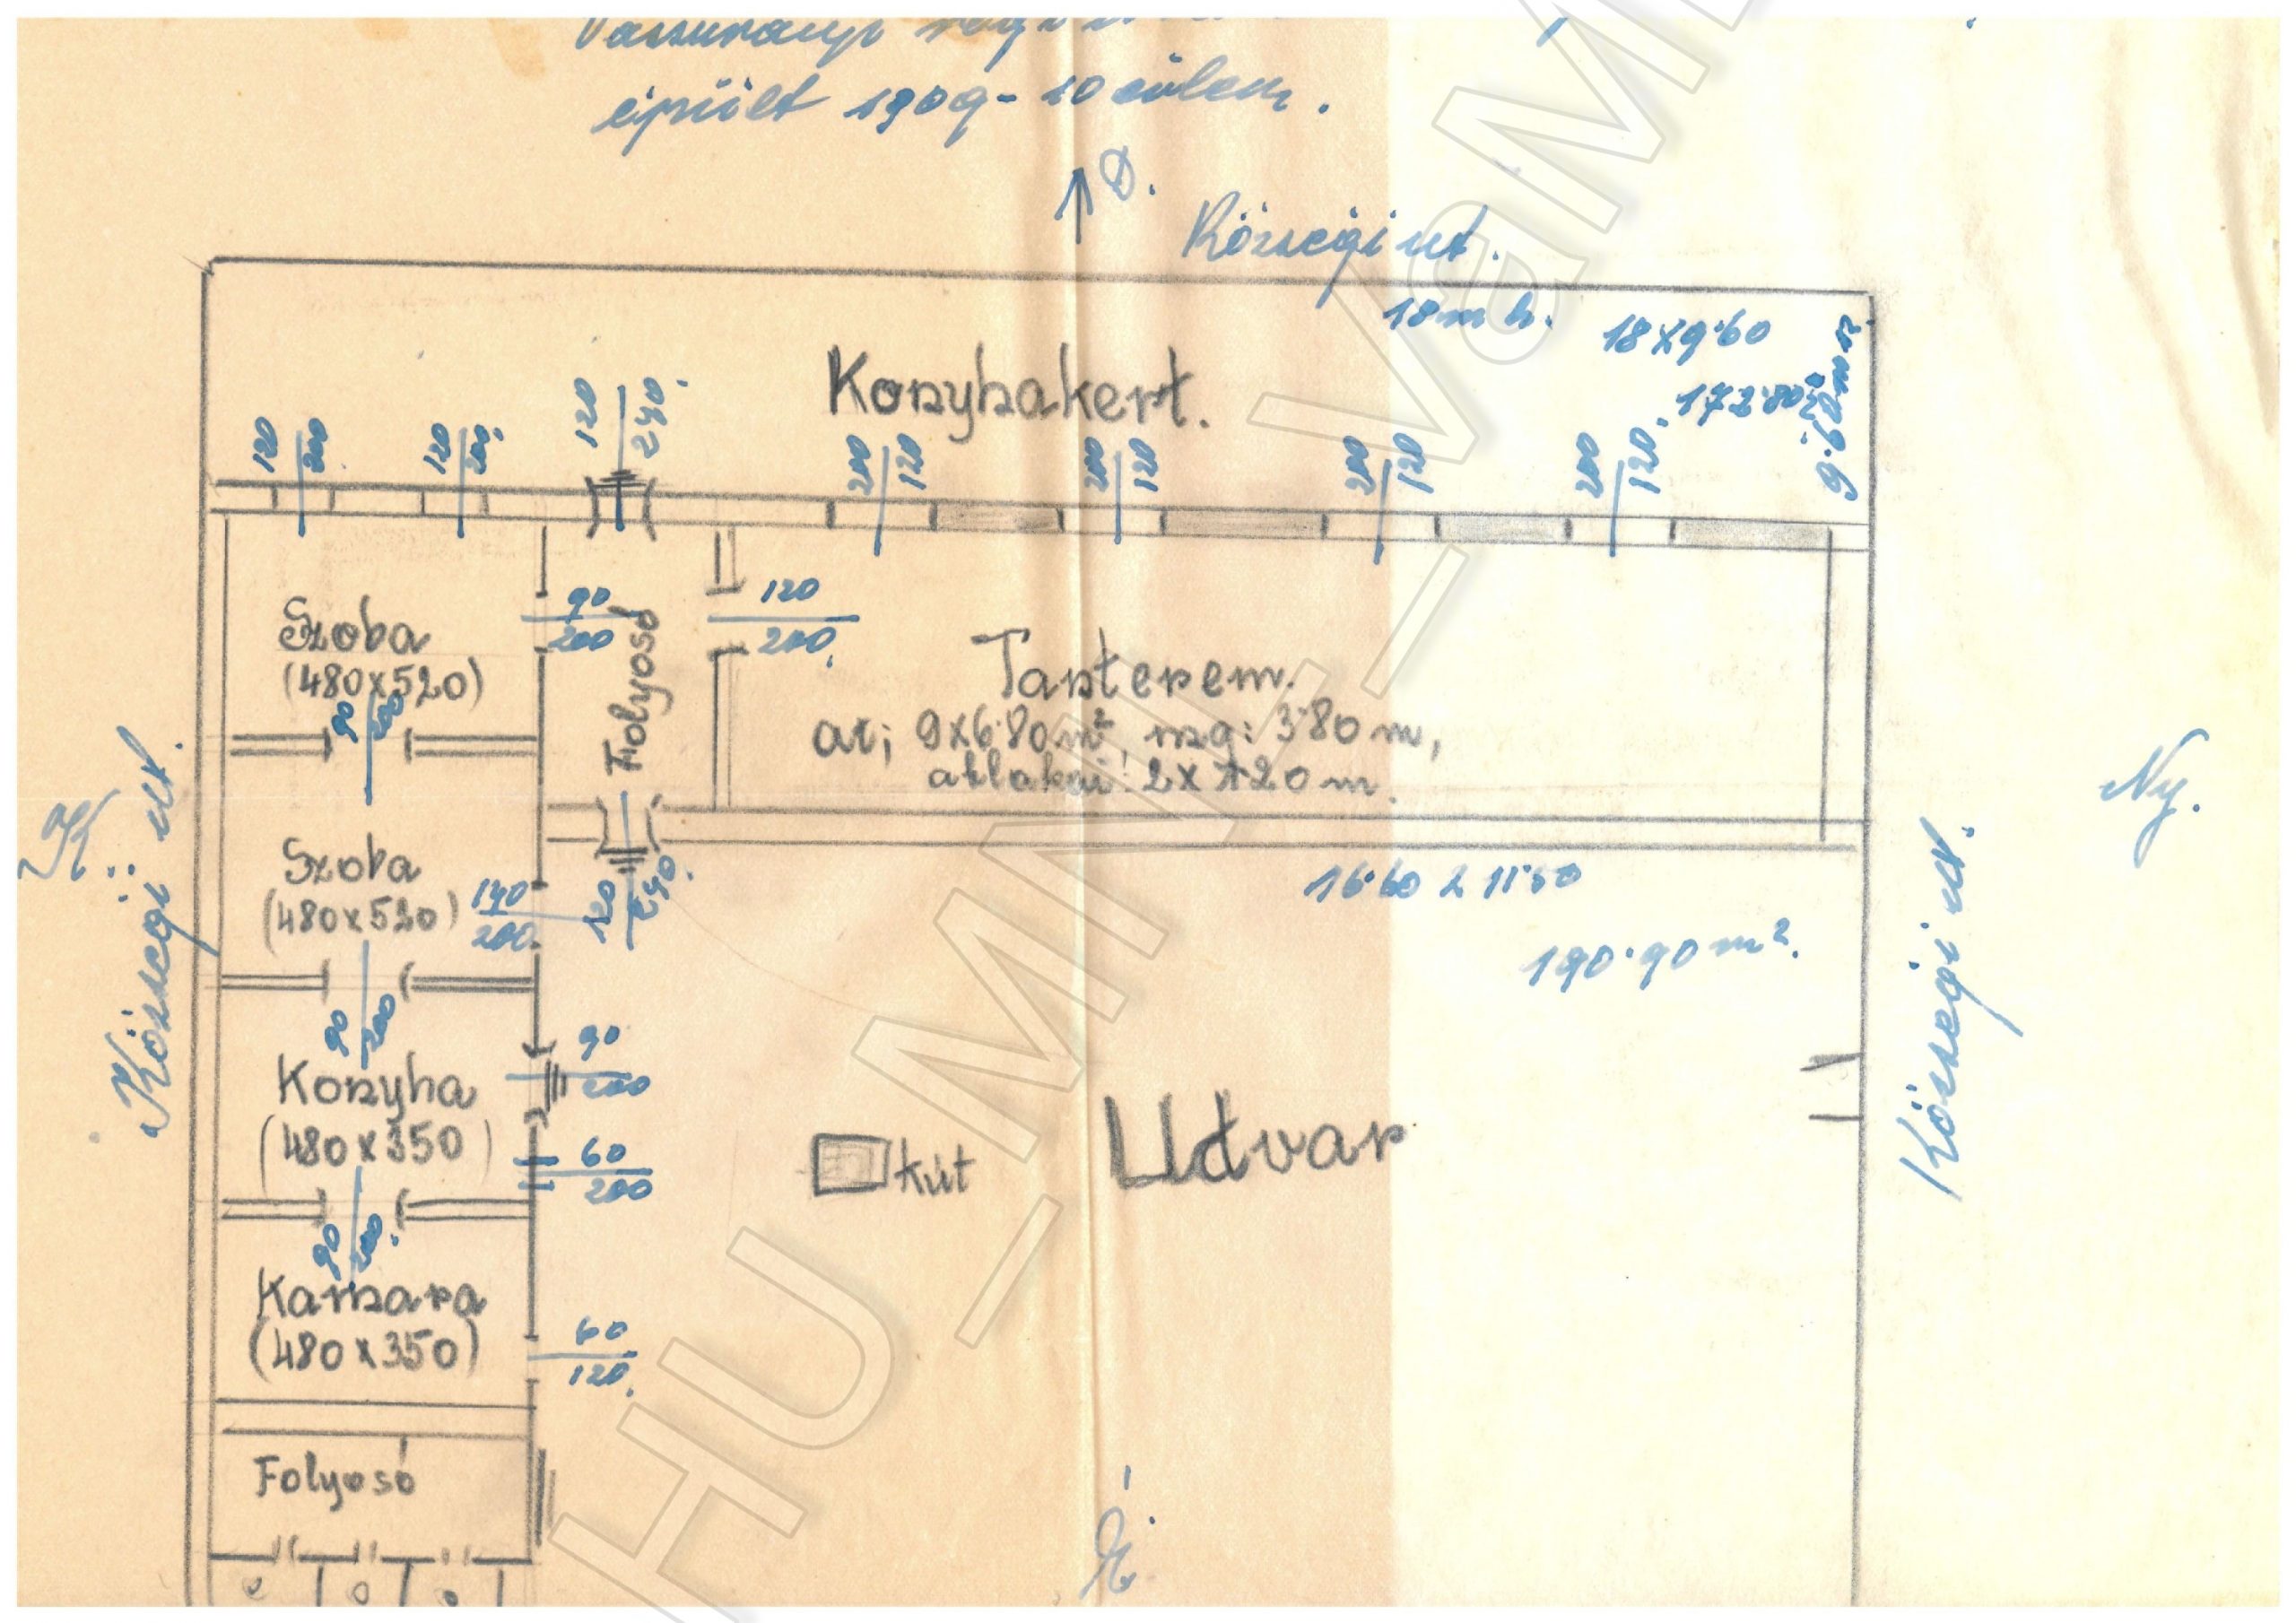 épült 1909-10 évben.
D.
Községi út.
18 m h.
18x9·60
172·80
9·60 m sz.
Konyhakert.
120
200
120
200.
120
240.
200
120
200
120
200
120
200
120.
Szoba
(480x520)
90
200
Folyosó
90
200
120
200.
Tanterem.
at; 9x6·80 m², mg: 3·80 m,
ablakai: 2x1·20 m.
K.
Községi út.
Ny.
Községi út.
Szoba
(480x520)
140
200.
120
240.
16·60 x 11·50
190·90 m².
90
200
Konyha
(480x350)
90
200
60
200
kút
Udvar
90
200.
Kamara
(480x350)
60
120.
Folyosó
É.
HU_MNL_VaML